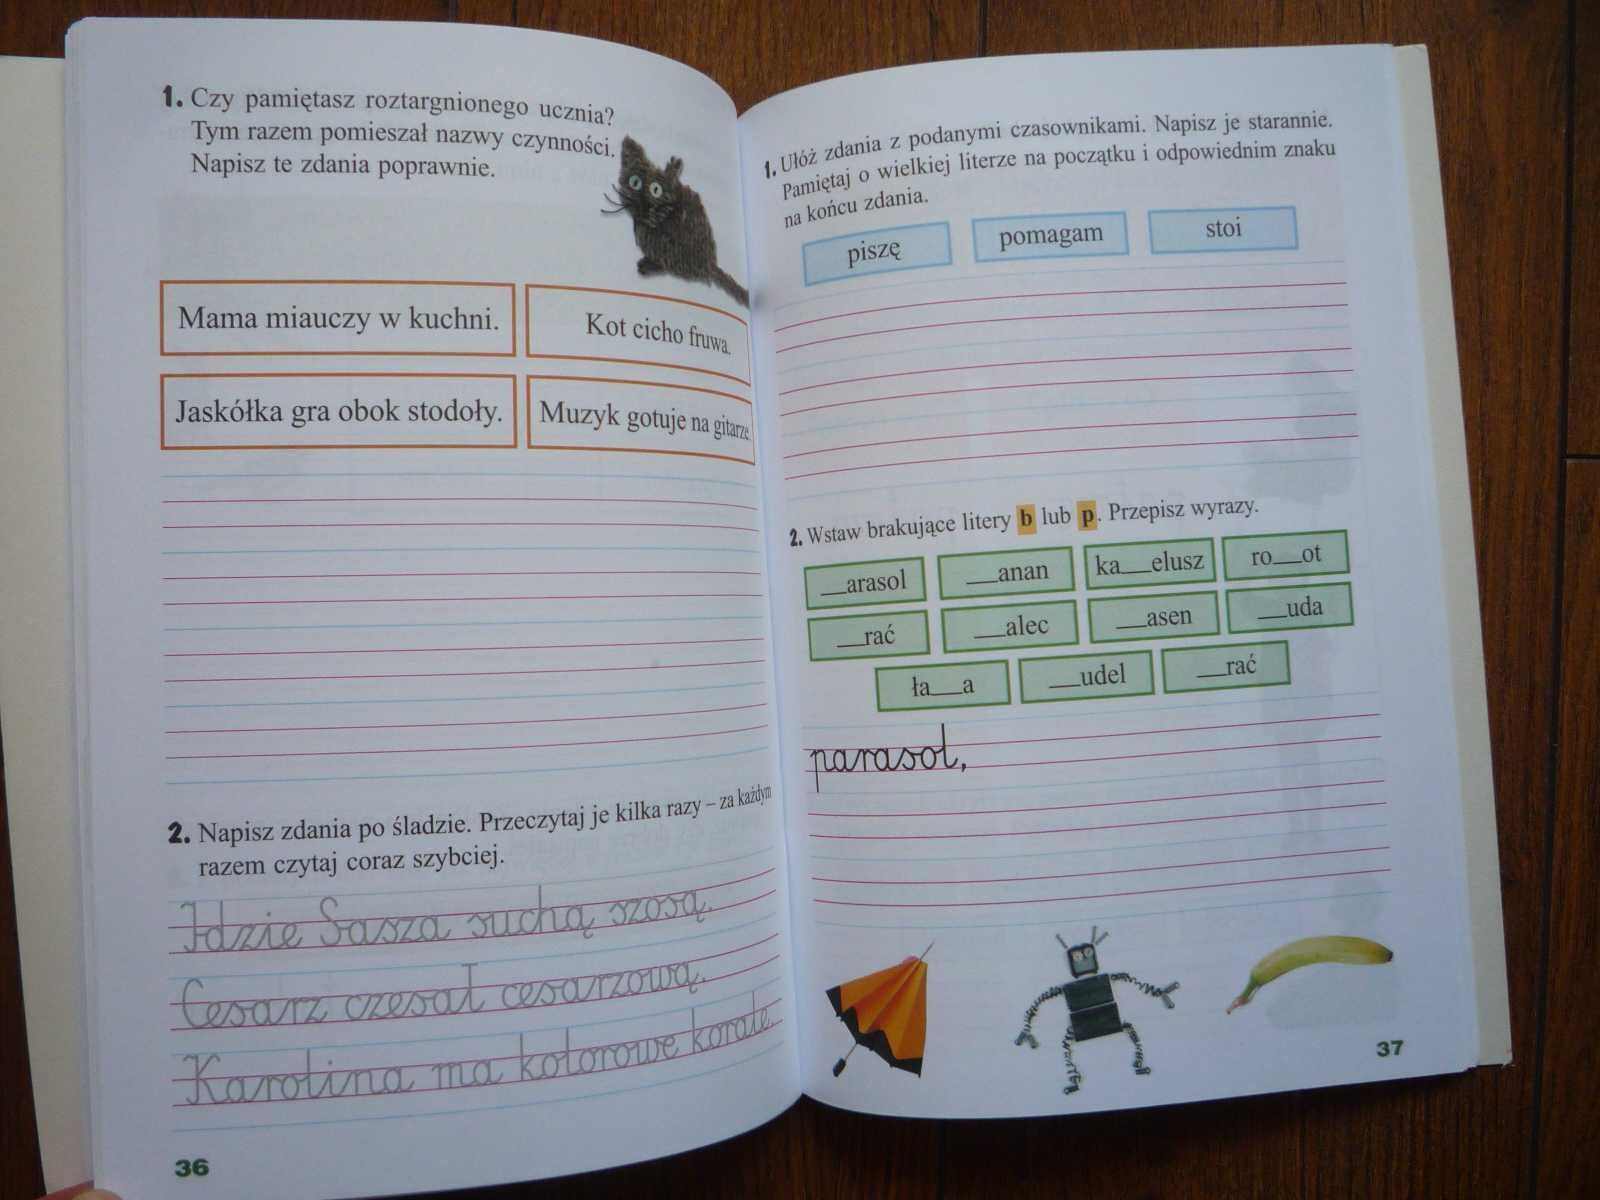 1. Czy pamiętasz roztargnionego ucznia?
Tym razem pomieszał nazwy czynności.
Napisz te zdania poprawnie.
Mama miauczy w kuchni.
Kot cicho fruwa.
Jaskółka gra obok stodoły.
Muzyk gotuje na gitarze.
2. Napisz zdania po śladzie. Przeczytaj je kilka razy – za każdym
razem czytaj coraz szybciej.
Idzie Sasza suchą szosą.
Cesarz czesał cesarzową.
Karolina ma kolorowe korale.
36
1. Ułóż zdania z podanymi czasownikami. Napisz je starannie.
Pamiętaj o wielkiej literze na początku i odpowiednim znaku
na końcu zdania.
piszę
pomagam
stoi
2. Wstaw brakujące litery b lub p. Przepisz wyrazy.
__arasol
__anan
ka__elusz
ro__ot
__rać
__alec
__asen
__uda
ła__a
__udel
__rać
parasol,
37